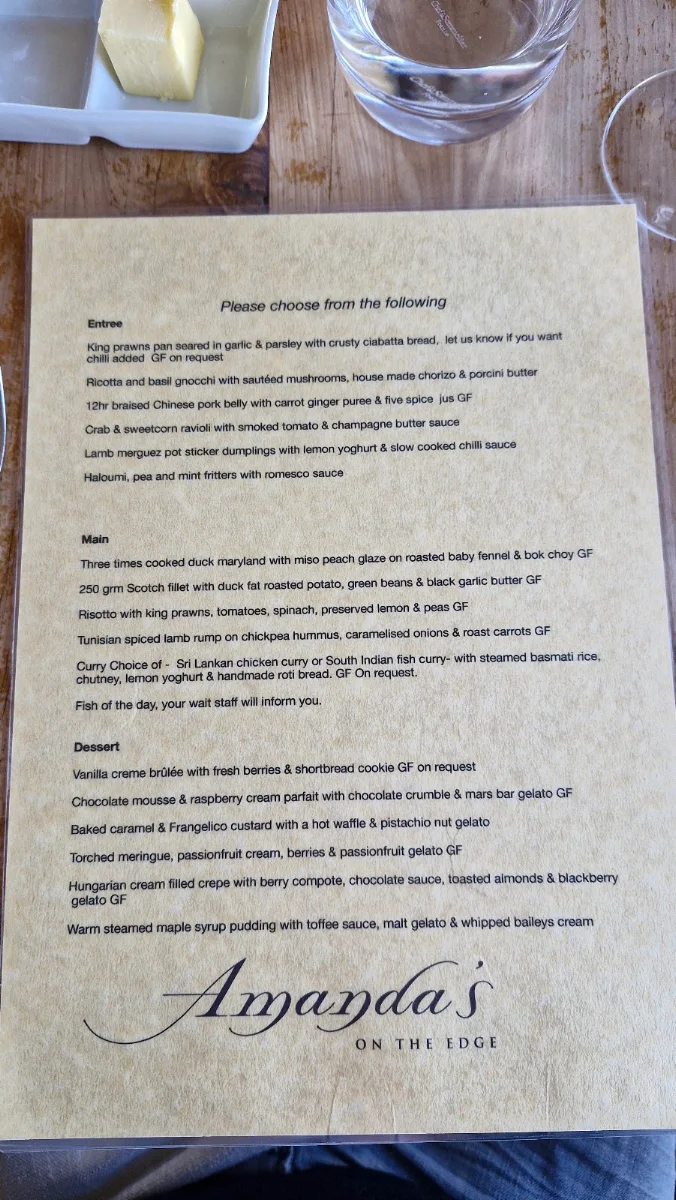 Please choose from the following
Entree
King prawns pan seared in garlic & parsley with crusty ciabatta bread, let us know if you want
chilli added GF on request
Ricotta and basil gnocchi with sautéed mushrooms, house made chorizo & porcini butter
12hr braised Chinese pork belly with carrot ginger puree & five spice jus GF
Crab & sweetcorn ravioli with smoked tomato & champagne butter sauce
Lamb merguez pot sticker dumplings with lemon yoghurt & slow cooked chilli sauce
Haloumi, pea and mint fritters with romesco sauce
Main
Three times cooked duck maryland with miso peach glaze on roasted baby fennel & bok choy GF
250 grm Scotch fillet with duck fat roasted potato, green beans & black garlic butter GF
Risotto with king prawns, tomatoes, spinach, preserved lemon & peas GF
Tunisian spiced lamb rump on chickpea hummus, caramelised onions & roast carrots GF
Curry Choice of - Sri Lankan chicken curry or South Indian fish curry- with steamed basmati rice,
chutney, lemon yoghurt & handmade roti bread. GF On request.
Fish of the day, your wait staff will inform you.
Dessert
Vanilla creme brûlée with fresh berries & shortbread cookie GF on request
Chocolate mousse & raspberry cream parfait with chocolate crumble & mars bar gelato GF
Baked caramel & Frangelico custard with a hot waffle & pistachio nut gelato
Torched meringue, passionfruit cream, berries & passionfruit gelato GF
Hungarian cream filled crepe with berry compote, chocolate sauce, toasted almonds & blackberry
gelato GF
Warm steamed maple syrup pudding with toffee sauce, malt gelato & whipped baileys cream
Amanda's
ON THE EDGE